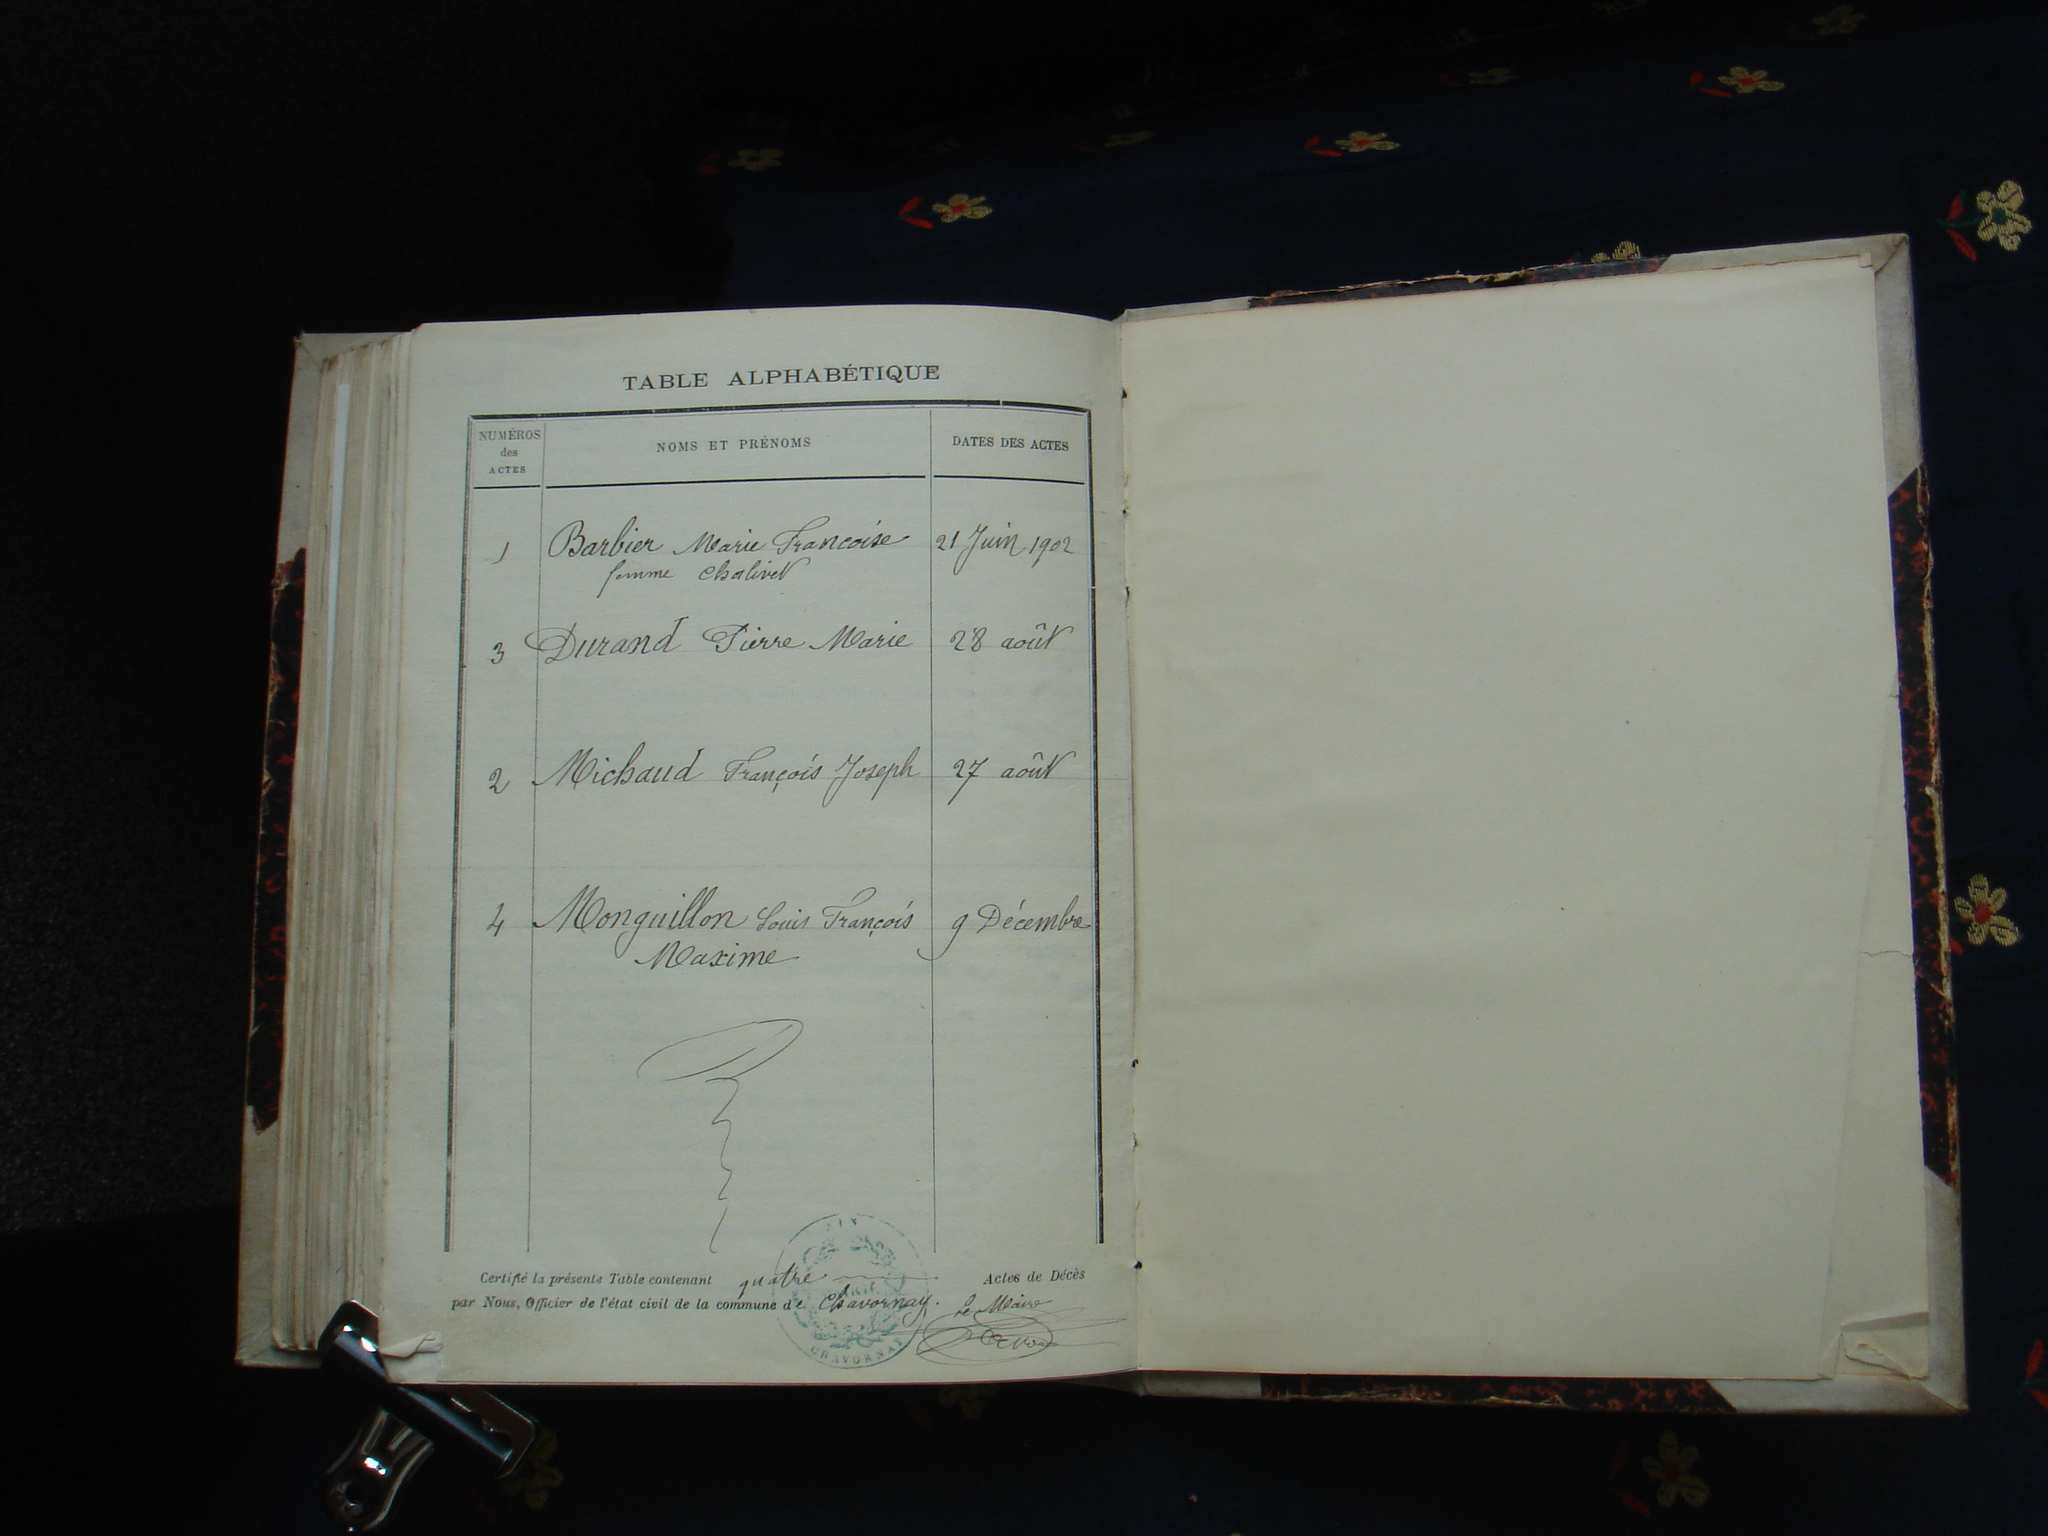 TABLE ALPHABÉTIQUE
NUMÉROS des ACTES NOMS ET PRÉNOMS DATES DES ACTES
1 Barbier Marie Francoise 21 Juin 1902
femme Chalivet
3 Durand Pierre Marie 28 août
2 Michaud François Joseph 27 août
4 Monguillon Louis François 9 Décembre
Maxime
Certifié la présente Table contenant quatre Actes de Décès
par Nous, Officier de l'état civil de la commune de Chavornay. Le Maire
AIN
CHAVORNAY